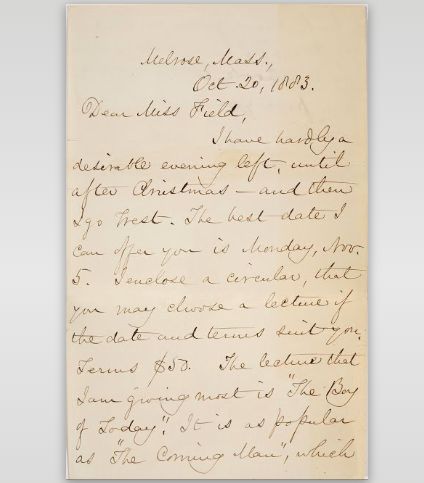 Melrose, Mass.,
Oct. 20, 1883.
Dear Miss Field,
I have hardly a
desirable evening left, until
after Christmas — and then
I go West. The best date I
can offer you is Monday, Nov.
5. I enclose a circular, that
you may choose a lecture if
the date and terms suit you.
Terms $50. The lecture that
I am giving most is "The Boy
of Today". It is as popular
as "The Coming Man", which